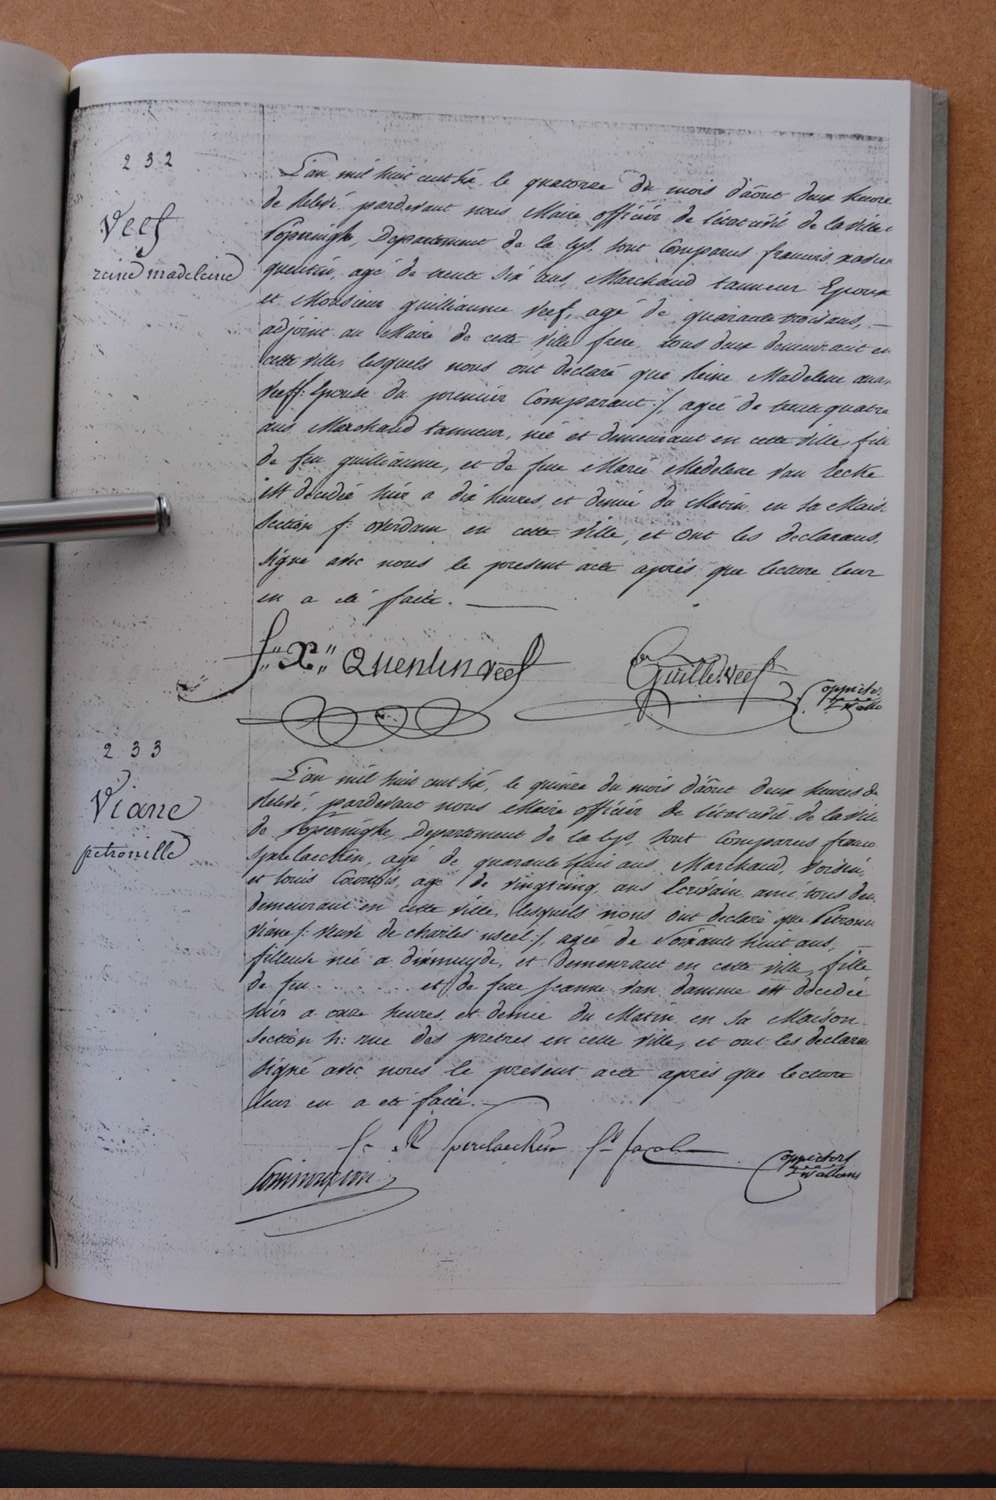 232
Veef
reine madeleine
L'an mil huit cent six, le quatorze du mois d'aôut deux heure
de Relevé, pardevant nous Maire officier de l'état civil de la ville
Poperinghe, Departement de la Lys, sont Comparus francois xavier
quentin, agé de trente six ans, Marchand tanneur Epoux
et Monsieur guilliaume Veef, agé de quarante trois ans, —
adjoint au Maire de cette Ville frere, tous deux demeurant en
cette ville, lesquels nous ont declaré que Reine Madelene
Veeff: Epouse du premier Comparant :/, agée de trente quatre
ans Marchand tanneur, née et demeurant en cette ville, fille
de feu guilliaume, et de feue Marie Madelene Van Eecke
est decedée hier a dix heures, et demie du Matin, en sa Mais.
Section f: overdam en cette Ville, et ont les declarans.
signé avec nous le present acte après que lecture leur
en a été faite. —
f:" X:" Quentin veef
Guille. Veef
233
Viane
petronille
L'an mil huit cent six, le quinze du mois d'aôut deux heures de
Relevé, pardevant nous Maire officier de l'état civil de la vill
de Poperinghe, Departement de la Lys, sont Comparus franc
agé de quarante huit ans, Marchand, voisin,
et louis agé de vingt cinq ans Ecrivain, ami tous deu
demeurant en cette ville, lesquels nous ont declaré que Petroni
Viane /: veuve de charles :/, agée de Soixante huit ans, —
filleuse née a dixmuyde, et demeurant en cette ville, fille
de feu . . . . . . . et de feue jeanne Van damme est decedée
hier a onze heures, et demie du Matin, en sa Maison
Section h: rue des pretres en cette ville, et ont les declara
signé avec nous le present acte après que lecture
leur en a été faite. —